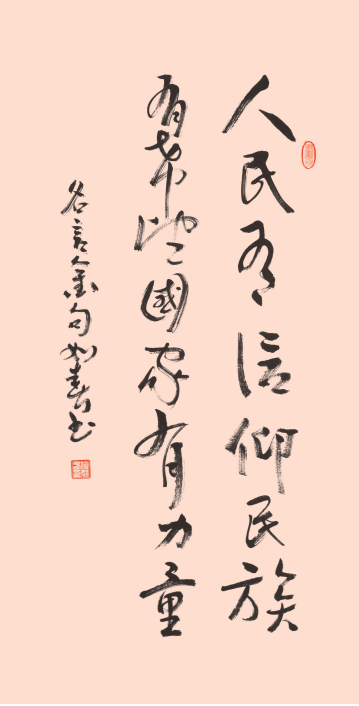 人民有信仰民族
有希望國家有力量
名言金句如书